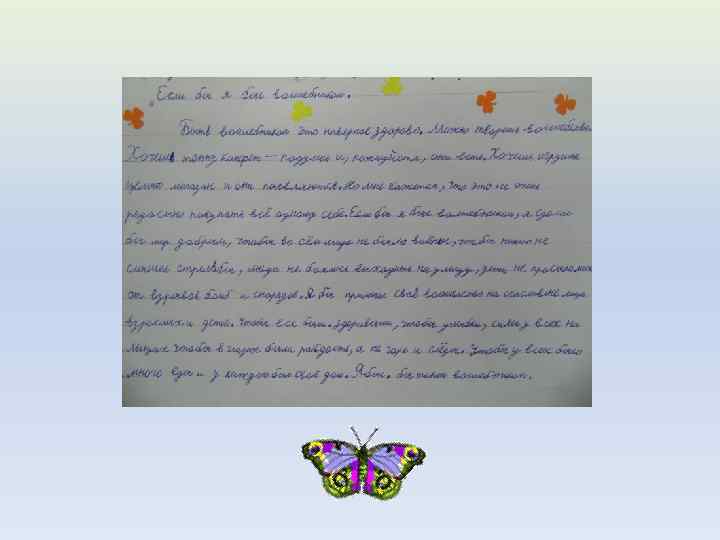 „Если бы я был волшебником.
Быть волшебником это наверное здорово. Можно творить волшебство.
Хочешь конфет — подумал и, пожалуйста, они есть. Хочешь игрушек
целый магазин и они появляются. Но мне кажется, что это не очень
радостно получать всё одному себе. Если бы я был волшебником, я сделал
бы мир добрым, чтобы во всём мире не было войны, чтобы никто не
слышал стрельбы, люди не боялись выходить на улицу, дети не просыпались
от взрывов бомб и снарядов. Я бы принёс своё волшебство на счастье
взрослых и детей. Чтобы все были здоровыми, чтобы улыбки, сияли у всех на
лицах чтобы в глазах была радость, а не горе и слёзы. Чтобы у всех было
много еды и у каждого был свой дом. Я бы. был таким волшебником.